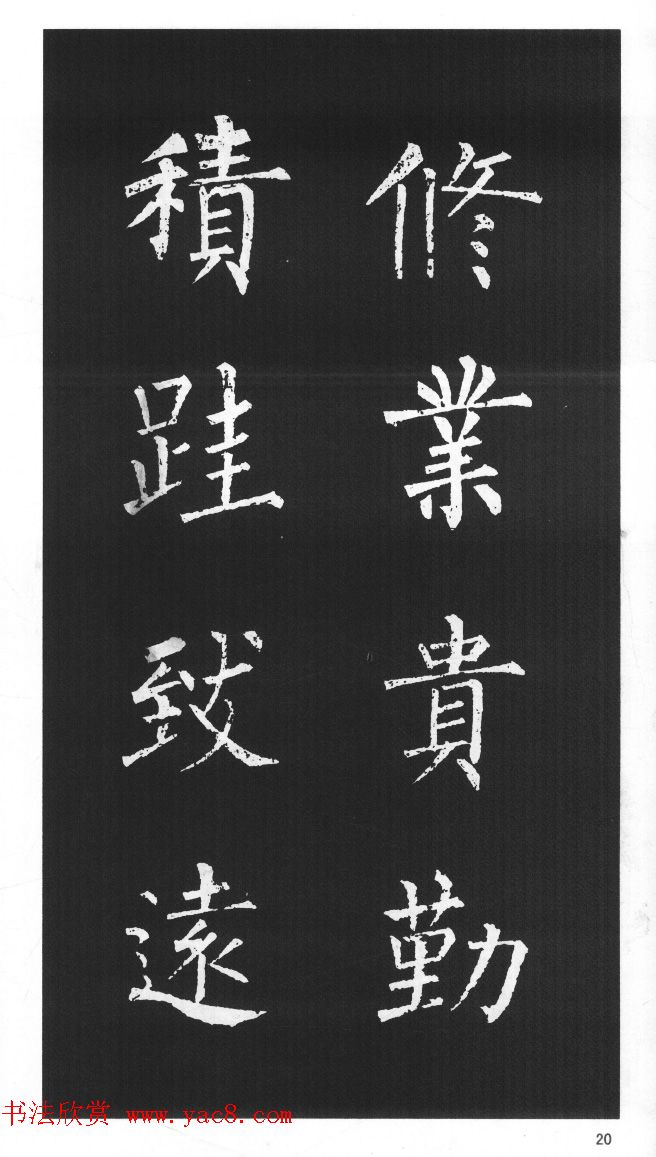 修業貴勤
積跬致遠
书法欣赏 www.yac8.com
20